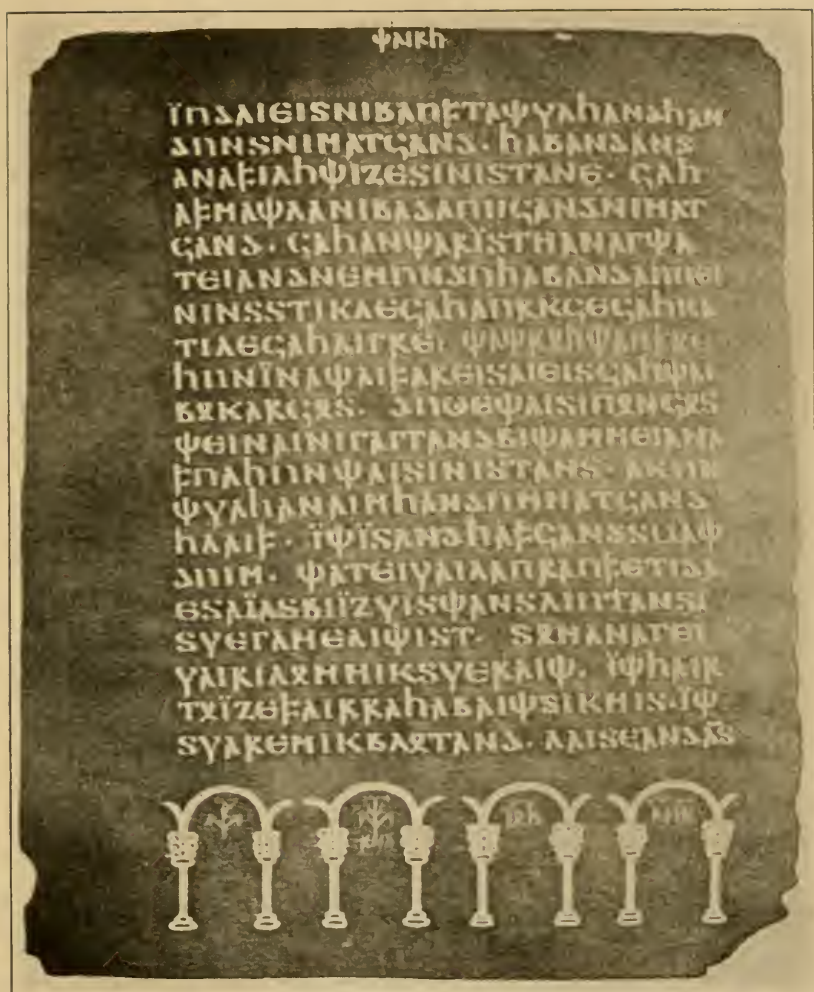 𐌸𐌰𐌹𐍂𐌷
𐌹̈𐌿𐌳𐌰𐌹𐌴𐌹𐍃𐌽𐌹𐌱𐌰𐌿𐍆𐍄𐌰𐌸𐍅𐌰𐌷𐌰𐌽𐌳𐌷𐌰𐌽
𐌳𐌿𐌽𐍃𐌽𐌹𐌼𐌰𐍄𐌾𐌰𐌽𐌳·𐌷𐌰𐌱𐌰𐌽𐌳𐌰𐌽𐍃
𐌰𐌽𐌰𐍆𐌹𐌻𐌷𐌸𐌹𐌶𐌴𐍃𐌹𐌽𐌹𐍃𐍄𐌰𐌽𐌴·𐌾𐌰𐌷
𐌰𐍆𐌼𐌰𐌸𐌻𐌰𐌽𐌹𐌱𐌰𐌳𐌰𐌿𐍀𐌾𐌰𐌽𐌳𐌽𐌹𐌼𐌰𐍄
𐌾𐌰𐌽𐌳·𐌾𐌰𐌷𐌰𐌽𐌸𐌰𐍂𐌹̈𐍃𐍄𐌼𐌰𐌽𐌰𐌲𐌸𐌰
𐍄𐌴𐌹𐌰𐌽𐌳𐌽𐌴𐌼𐌿𐌽𐌳𐌿𐌷𐌰𐌱𐌰𐌽𐌳𐌰𐌿𐍀𐌴𐌹
𐌽𐌹𐌽𐍃𐍃𐍄𐌹𐌺𐌻𐌴𐌾𐌰𐌷𐌰𐌿𐍂𐌺𐌾𐌴𐌾𐌰𐌷𐌺𐌰
𐍄𐌹𐌻𐌴𐌾𐌰𐌷𐌻𐌹𐌲𐍂𐌴·𐌸𐌰𐌸𐍂𐍉𐌷𐌸𐌰𐌽𐍆𐍂𐌴
𐌷𐌿𐌽𐌹̈𐌽𐌰𐌸𐌰𐌹𐍆𐌰𐍂𐌴𐌹𐍃𐌰𐌹𐌴𐌹𐍃𐌾𐌰𐌷𐌸𐌰𐌹
𐌱𐍉𐌺𐌰𐍂𐌾𐍉𐍃·𐌳𐌿𐍈𐌴𐌸𐌰𐌹𐍃𐌹𐍀𐍉𐌽𐌾𐍉𐍃
𐌸𐌴𐌹𐌽𐌰𐌹𐌽𐌹𐌲𐌰𐌲𐌲𐌰𐌽𐌳𐌱𐌹𐌸𐌰𐌼𐌼𐌴𐌹𐌰𐌽𐌰
𐍆𐌿𐌻𐌷𐌿𐌽𐌸𐌰𐌹𐍃𐌹𐌽𐌹𐍃𐍄𐌰𐌽𐍃·𐌰𐌺𐌿𐌽
𐌸𐍅𐌰𐌷𐌰𐌽𐌰𐌹𐌼𐌷𐌰𐌽𐌳𐌿𐌼𐌼𐌰𐍄𐌾𐌰𐌽𐌳
𐌷𐌻𐌰𐌹𐍆·𐌹̈𐌸𐌹̈𐍃𐌰𐌽𐌳𐌷𐌰𐍆𐌾𐌰𐌽𐌳𐍃𐌵𐌰𐌸
𐌳𐌿𐌹𐌼·𐌸𐌰𐍄𐌴𐌹𐍅𐌰𐌹𐌻𐌰𐍀𐍂𐌰𐌿𐍆𐌴𐍄𐌹𐌳𐌰
𐌴𐍃𐌰𐌹̈𐌰𐍃𐌱𐌹𐌹̈𐌶𐍅𐌹𐍃𐌸𐌰𐌽𐍃𐌻𐌹𐌿𐍄𐌰𐌽𐍃·
𐍃𐍅𐌴𐌲𐌰𐌼𐌴𐌻𐌹𐌸𐌹𐍃𐍄·𐍃𐍉𐌼𐌰𐌽𐌰𐌲𐌴𐌹
𐍅𐌰𐌹𐍂𐌹𐌻𐍉𐌼𐌼𐌹𐌺𐍃𐍅𐌴𐍂𐌰𐌹𐌸·𐌹̈𐌸𐌷𐌰𐌹𐍂
𐍄𐍉𐌹̈𐌶𐌴𐍆𐌰𐌹𐍂𐍂𐌰𐌷𐌰𐌱𐌰𐌹𐌸𐍃𐌹𐌺𐌼𐌹𐍃·𐌹̈𐌸
𐍃𐍅𐌰𐍂𐌴𐌼𐌹𐌺𐌱𐌻𐍉𐍄𐌰𐌽𐌳·𐌻𐌰𐌹𐍃𐌾𐌰𐌽𐌳𐌰𐌽𐍃